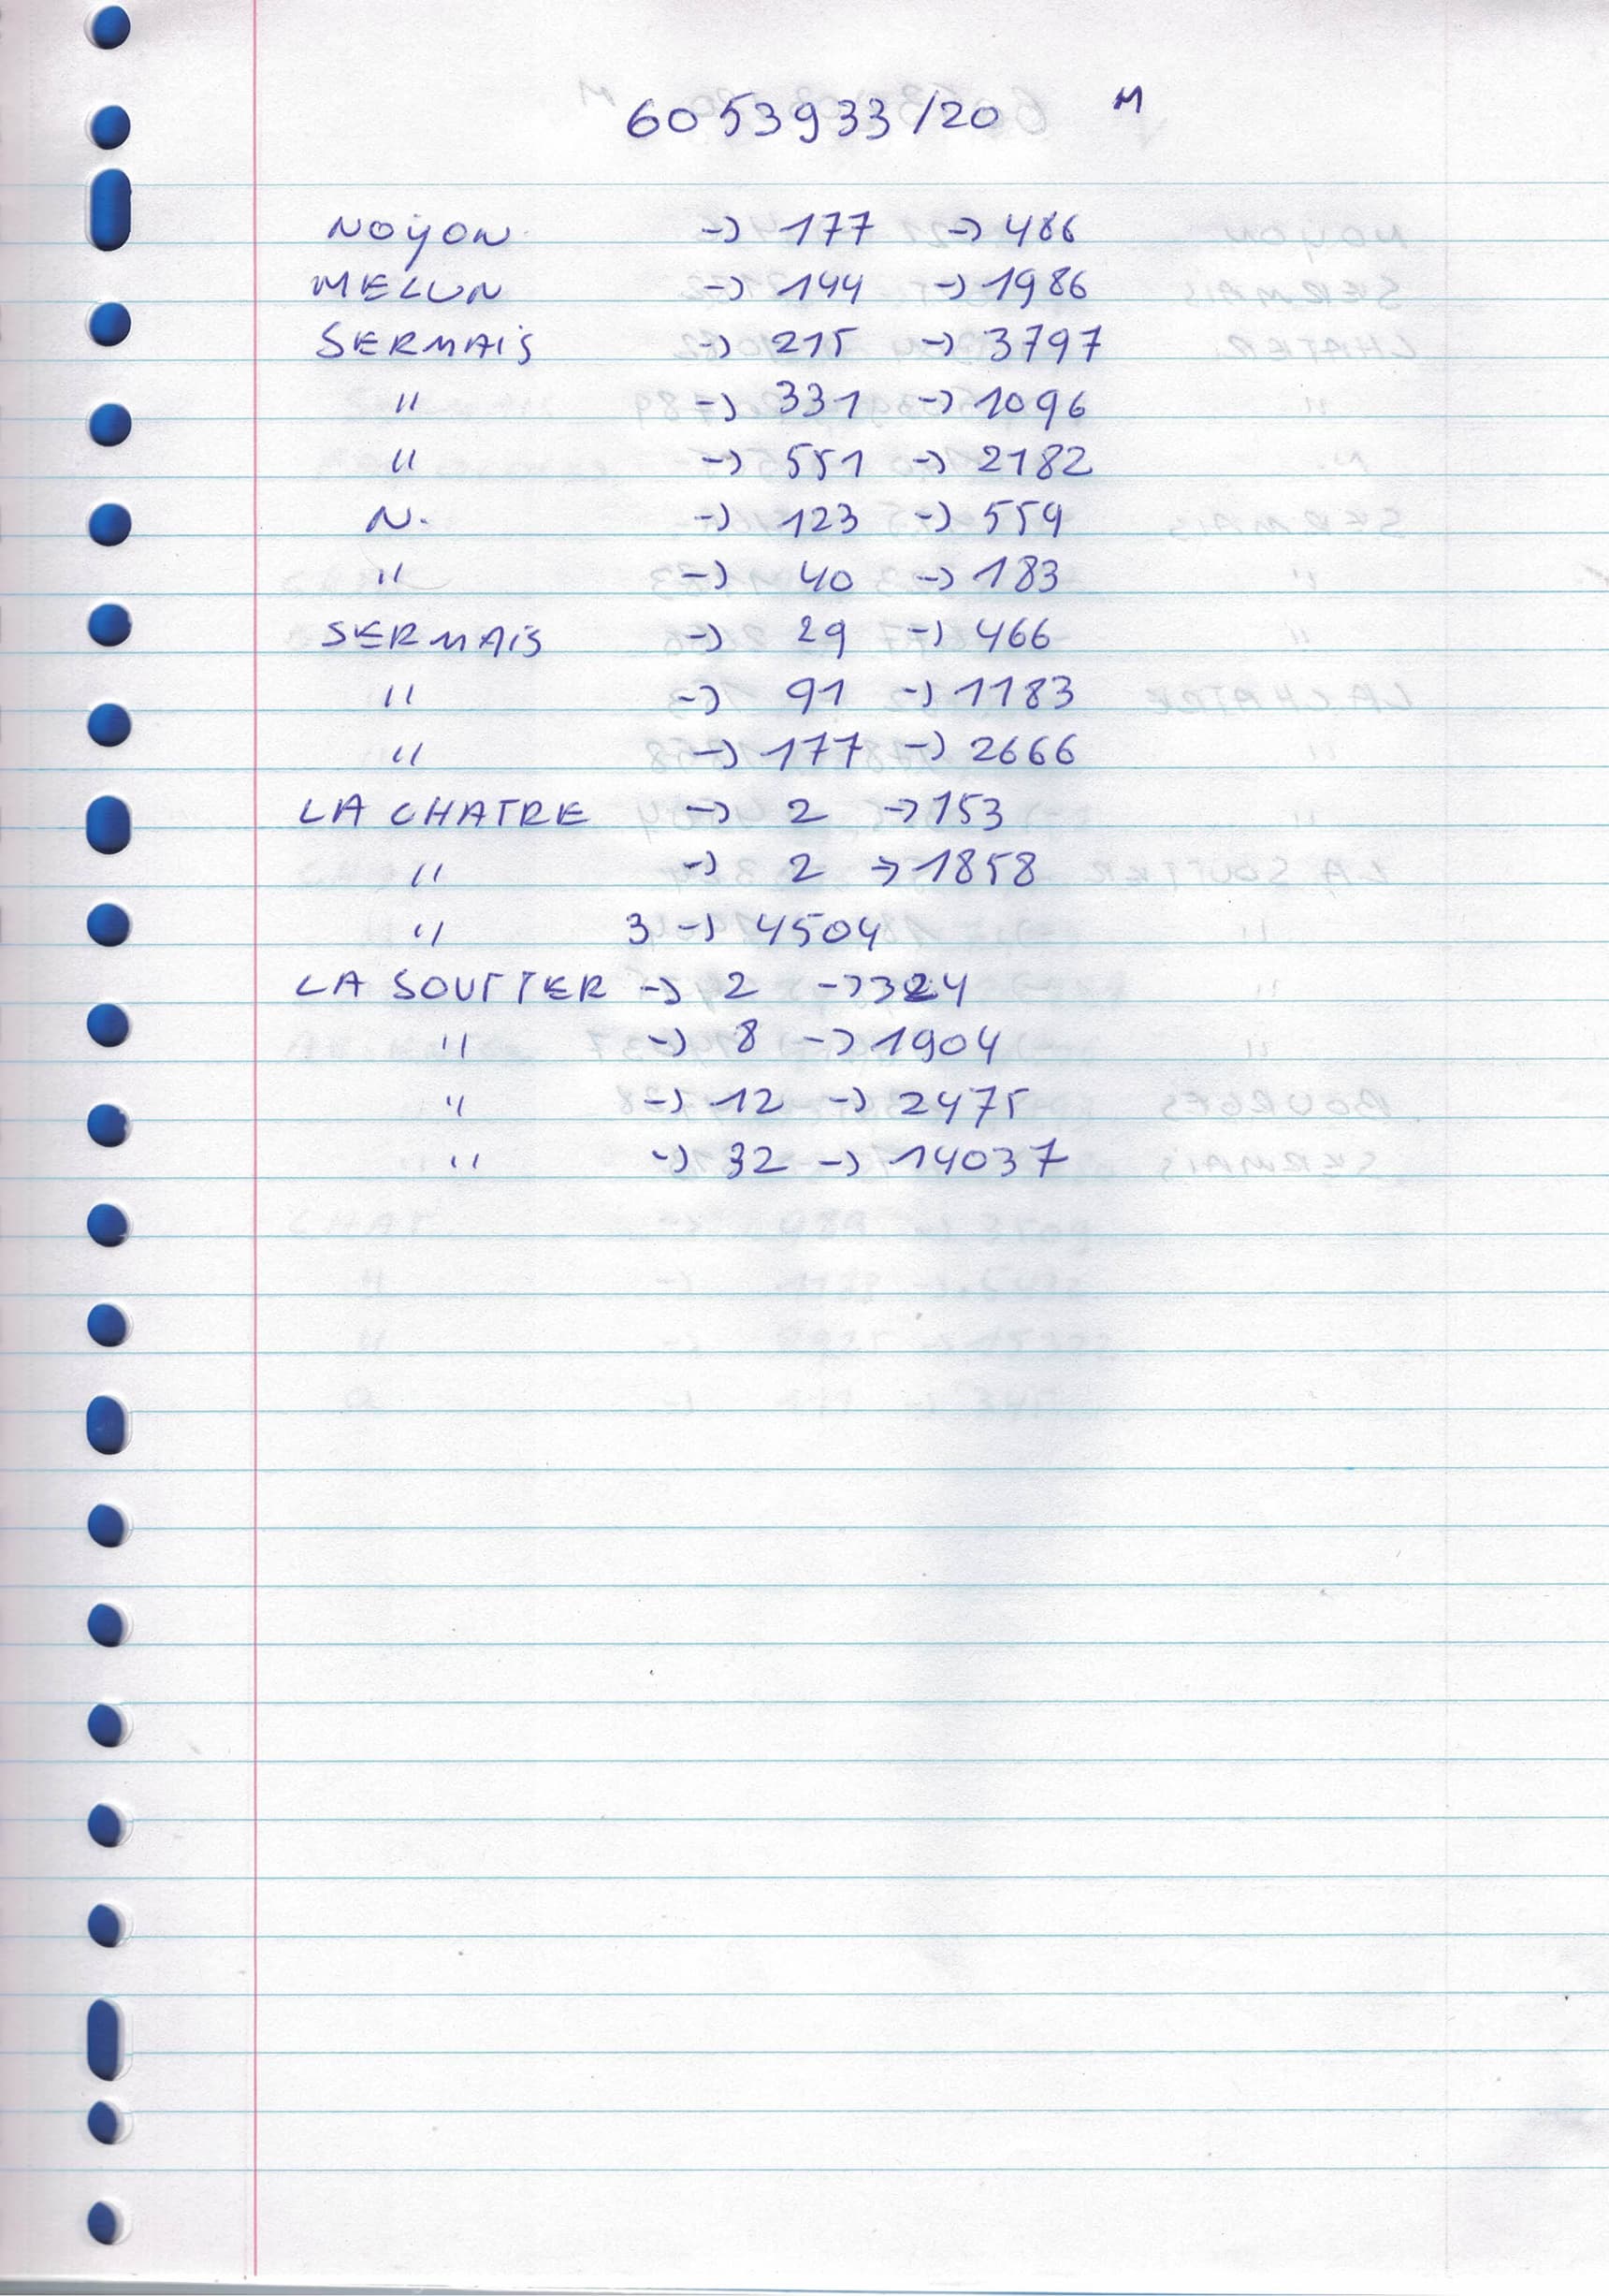 6053933/20 M
NOYON -> 177 -> 486
MELUN -> 144 -> 1986
SERMAIS -> 215 -> 3797
" -> 331 -> 1096
" -> 551 -> 2182
N. -> 123 -> 559
" -> 40 -> 183
SERMAIS -> 29 -> 466
" -> 91 -> 1183
" -> 177 -> 2666
LA CHATRE -> 2 -> 153
" -> 2 -> 1858
" 3 -> 4504
LA SOUTTER -> 2 -> 324
" -> 8 -> 1904
" -> 12 -> 2475
" -> 32 -> 14037